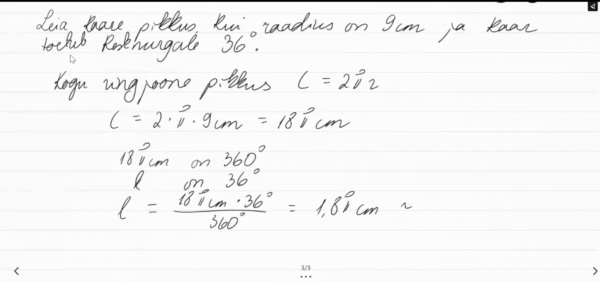 Leia kaare pikkus, kui raadius on 9cm ja kaar
toetub kesknurgale 36°.
Kogu ringjoone pikkus C = 2πr
C = 2·π·9cm = 18πcm
18πcm on 360°
l on 36°
l = 18πcm·36° / 360° = 1,8πcm ~
3/3